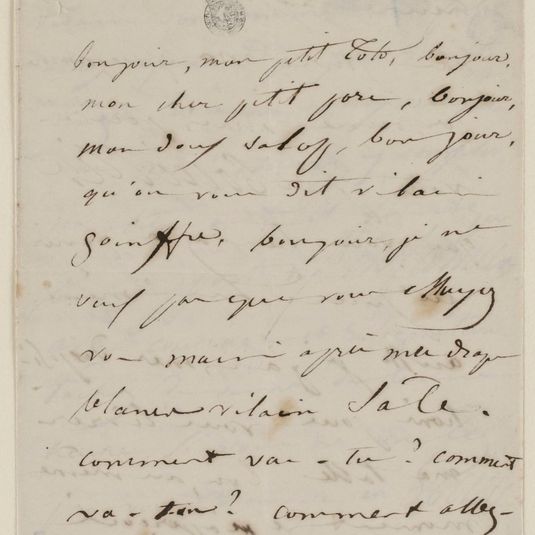 bonjour, mon petit Toto, bonjour,
mon cher petit porc, bonjour,
mon doux salop, bonjour,
qu'on vous dit vilain
goinffre, bonjour, je ne
veux pas que vous essuyez
vos mains après mes draps
blancs vilain SaLe.
comment vas-tu ? comment
va-t-on ? comment allez-